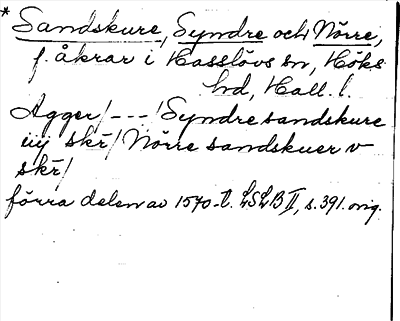 * Sandskure, Syndre och Nörre,
f. åkrar i Hasslövs sn, Höks
hd, Hall. l.
Agger/---/Syndre sandskure
iiij skr̄/Nörre sandskuer v
skr̄/
förra delen av 1570-t. LSLB II, s. 391. orig.